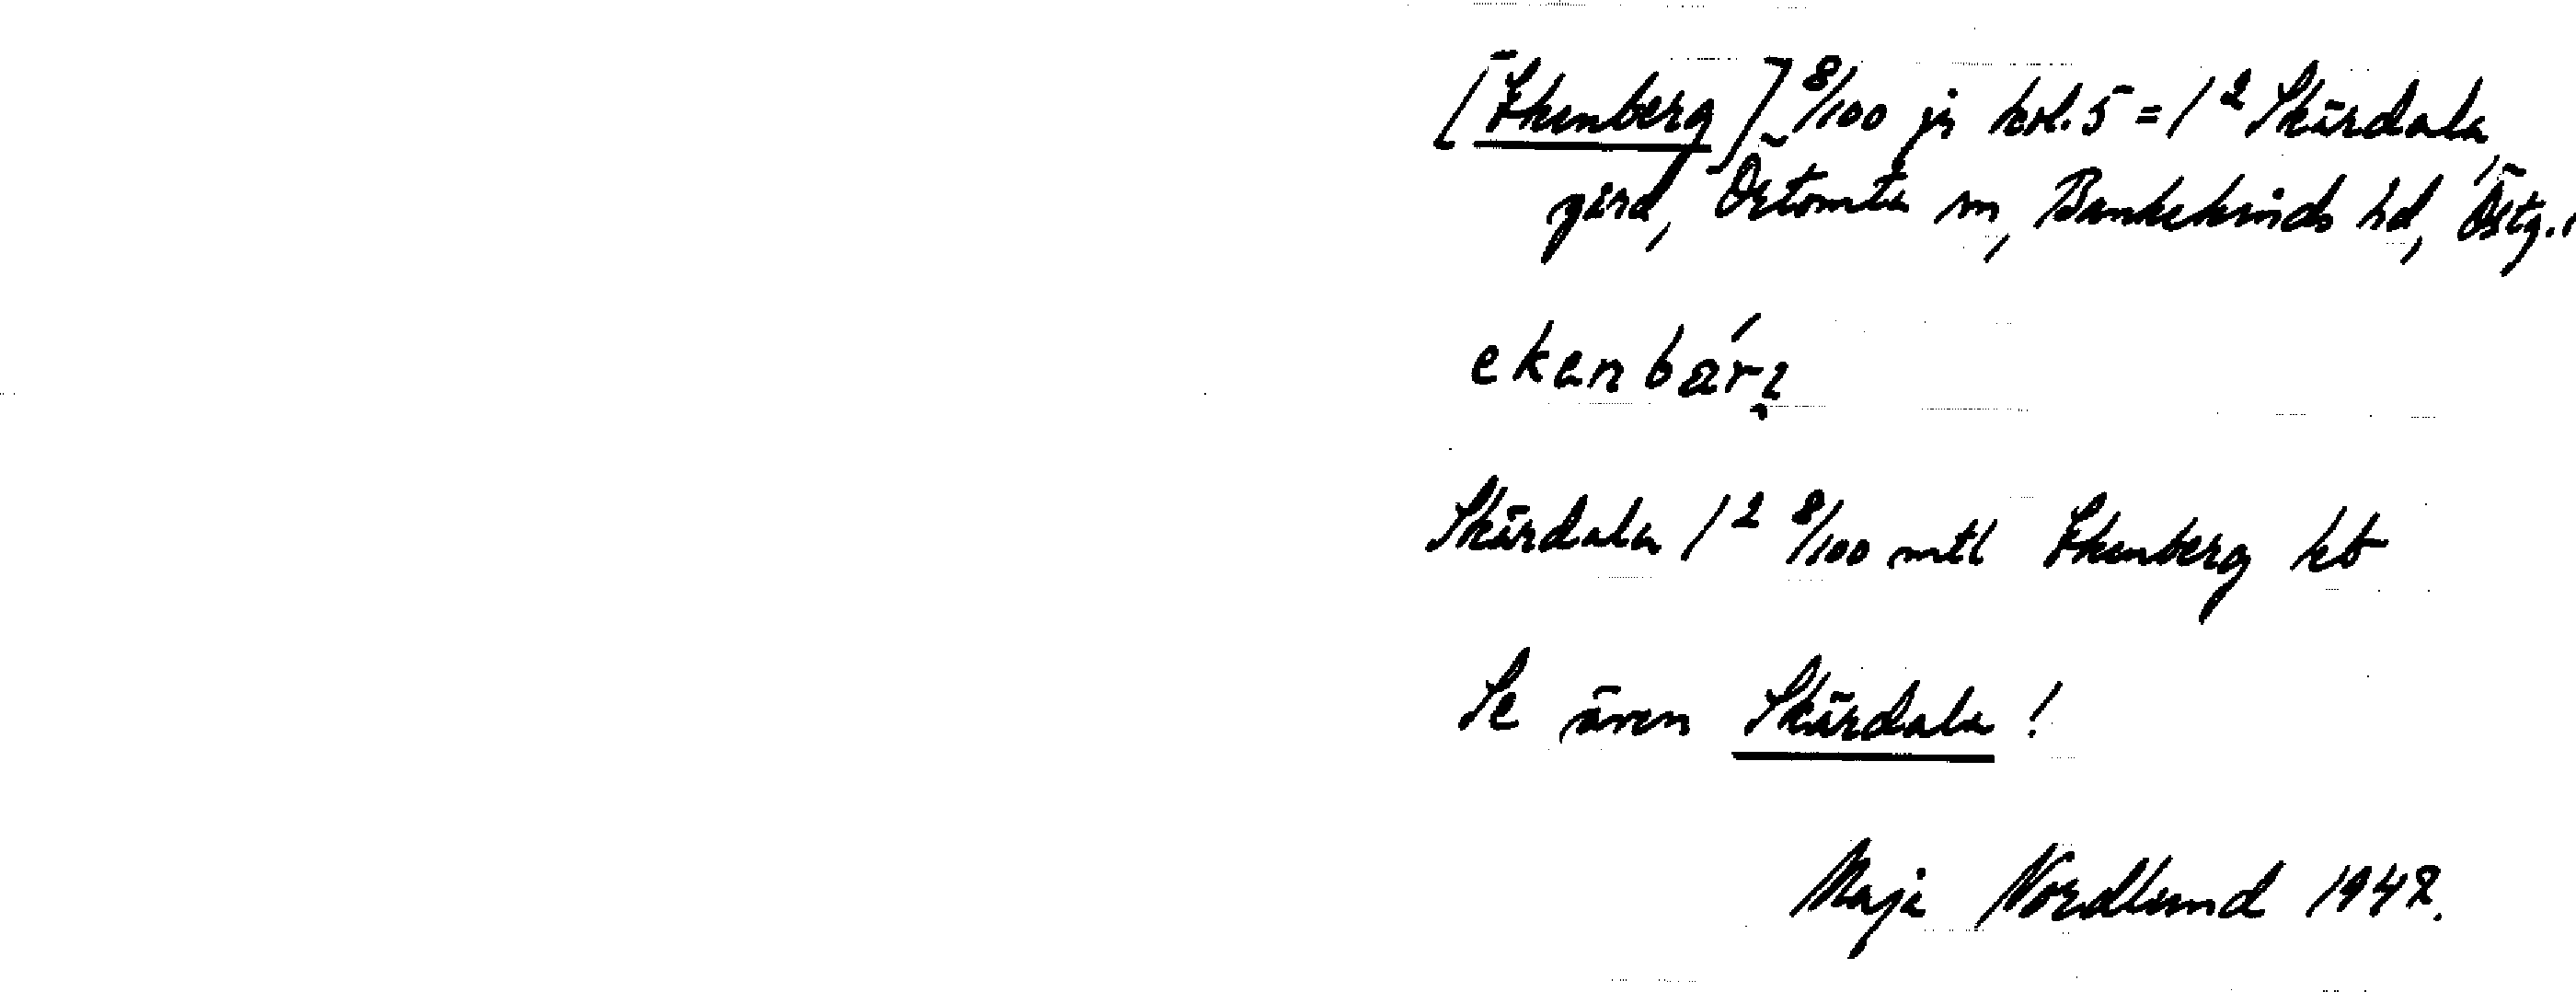 [Ekenberg] 8/100 jr kol. 5 = 1² Skärdala,
gård, Örtomta sn, Bankekinds hd, Östg. l
ekanbárɩ̯
Skärdala 1² 8/100 mtl Ekenberg kb
Se även Skärdala!
Maja Nordlund 1942.